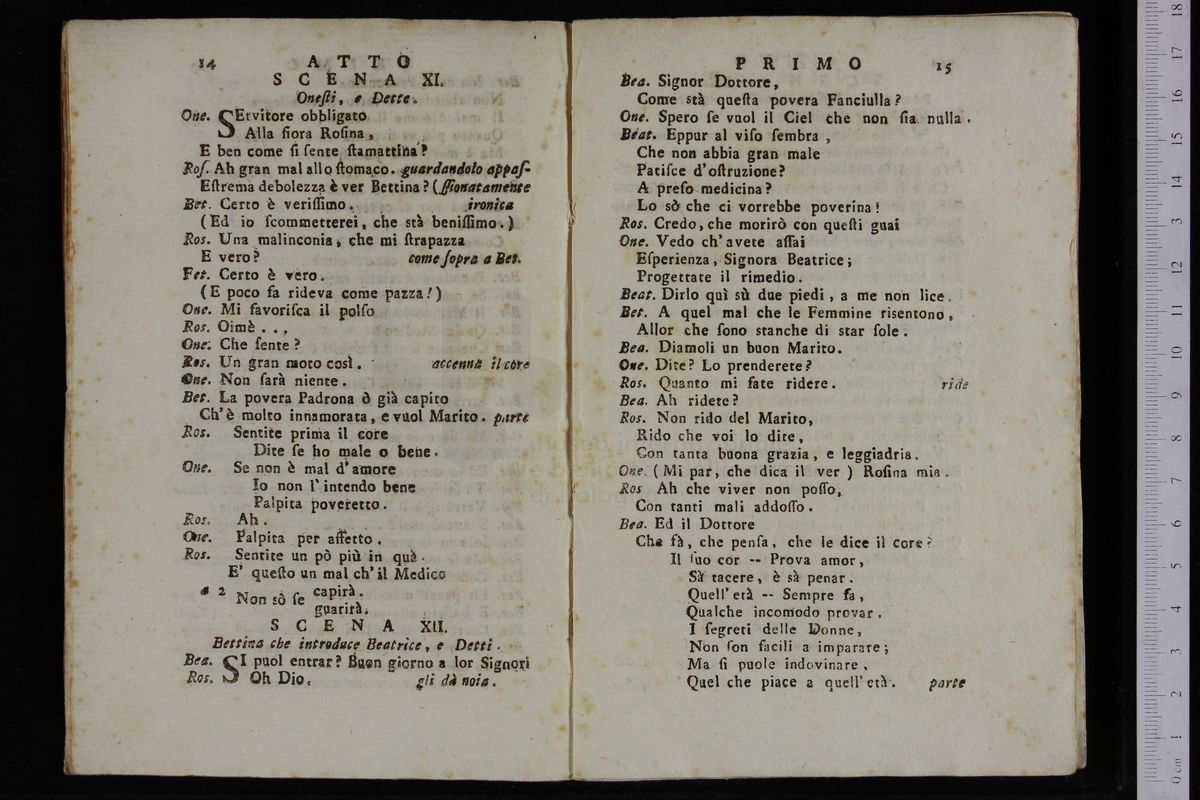 14 ATTO
SCENA XI.
Oneſti, e Dette.
One. SErvitore obbligato
Alla ſiora Roſina,
E ben come ſi ſente ſtamattina?
Roſ. Ah gran mal allo ſtomaco. guardandolo appaſ-
Eſtrema debolezza è ver Bettina? (ſſionatamente
Bet. Certo è veriſſimo. ironica
(Ed io ſcommetterei, che stà beniſſimo.)
Ros. Una malinconia, che mi ſtrapazza
E vero? come ſopra a Bet.
Fet. Certo è vero.
(E poco fa rideva come pazza!)
One. Mi favoriſca il polſo
Ros. Oimè . . .
One. Che ſente?
Ros. Un gran moto così. accenna il core
One. Non ſarà niente.
Bet. La povera Padrona ò già capito
Ch'è molto innamorata, e vuol Marito. parte
Ros. Sentite prima il core
Dite ſe ho male o bene.
One. Se non è mal d'amore
Io non l'intendo bene
Palpita poveretto.
Ros. Ah.
One. Palpita per affetto.
Ros. Sentite un pò più in quà.
E' queſto un mal ch'il Medico
a 2 Non sò ſe capirà.
guarirà.
SCENA XII.
Bettina che introduce Beatrice, e Detti.
Bea. SI puol entrar? Buon giorno a lor Signori
Ros. Oh Dio. gli dà noia.
PRIMO 15
Bea. Signor Dottore,
Come stà queſta povera Fanciulla?
One. Spero ſe vuol il Ciel che non ſia nulla.
Beat. Eppur al viſo ſembra,
Che non abbia gran male
Patiſce d'oſtruzione?
A preſo medicina?
Lo sò che ci vorrebbe poverina!
Ros. Credo, che morirò con queſti guai
One. Vedo ch'avete aſſai
Eſperienza, Signora Beatrice;
Progettate il rimedio.
Beat. Dirlo quì sù due piedi, a me non lice.
Bet. A quel mal che le Femmine risentono,
Allor che ſono stanche di star ſole.
Bea. Diamoli un buon Marito.
One. Dite? Lo prenderete?
Ros. Quanto mi fate ridere. ride
Bea. Ah ridete?
Ros. Non rido del Marito,
Rido che voi lo dite,
Con tanta buona grazia, e leggiadria.
One. (Mi par, che dica il ver) Roſina mia.
Ros Ah che viver non poſſo,
Con tanti mali addoſſo.
Bea. Ed il Dottore
Che fà, che penſa, che le dice il core?
Il ſuo cor -- Prova amor,
Sà tacere, è sà penar.
Quell'età -- Sempre fa,
Qualche incomodo provar.
I ſegreti delle Donne,
Non ſon facili a imparare;
Ma ſi puole indovinare,
Quel che piace a quell'età. parte
18
17
16
15
14
13
12
11
10
9
8
7
6
5
4
3
2
1
0 cm